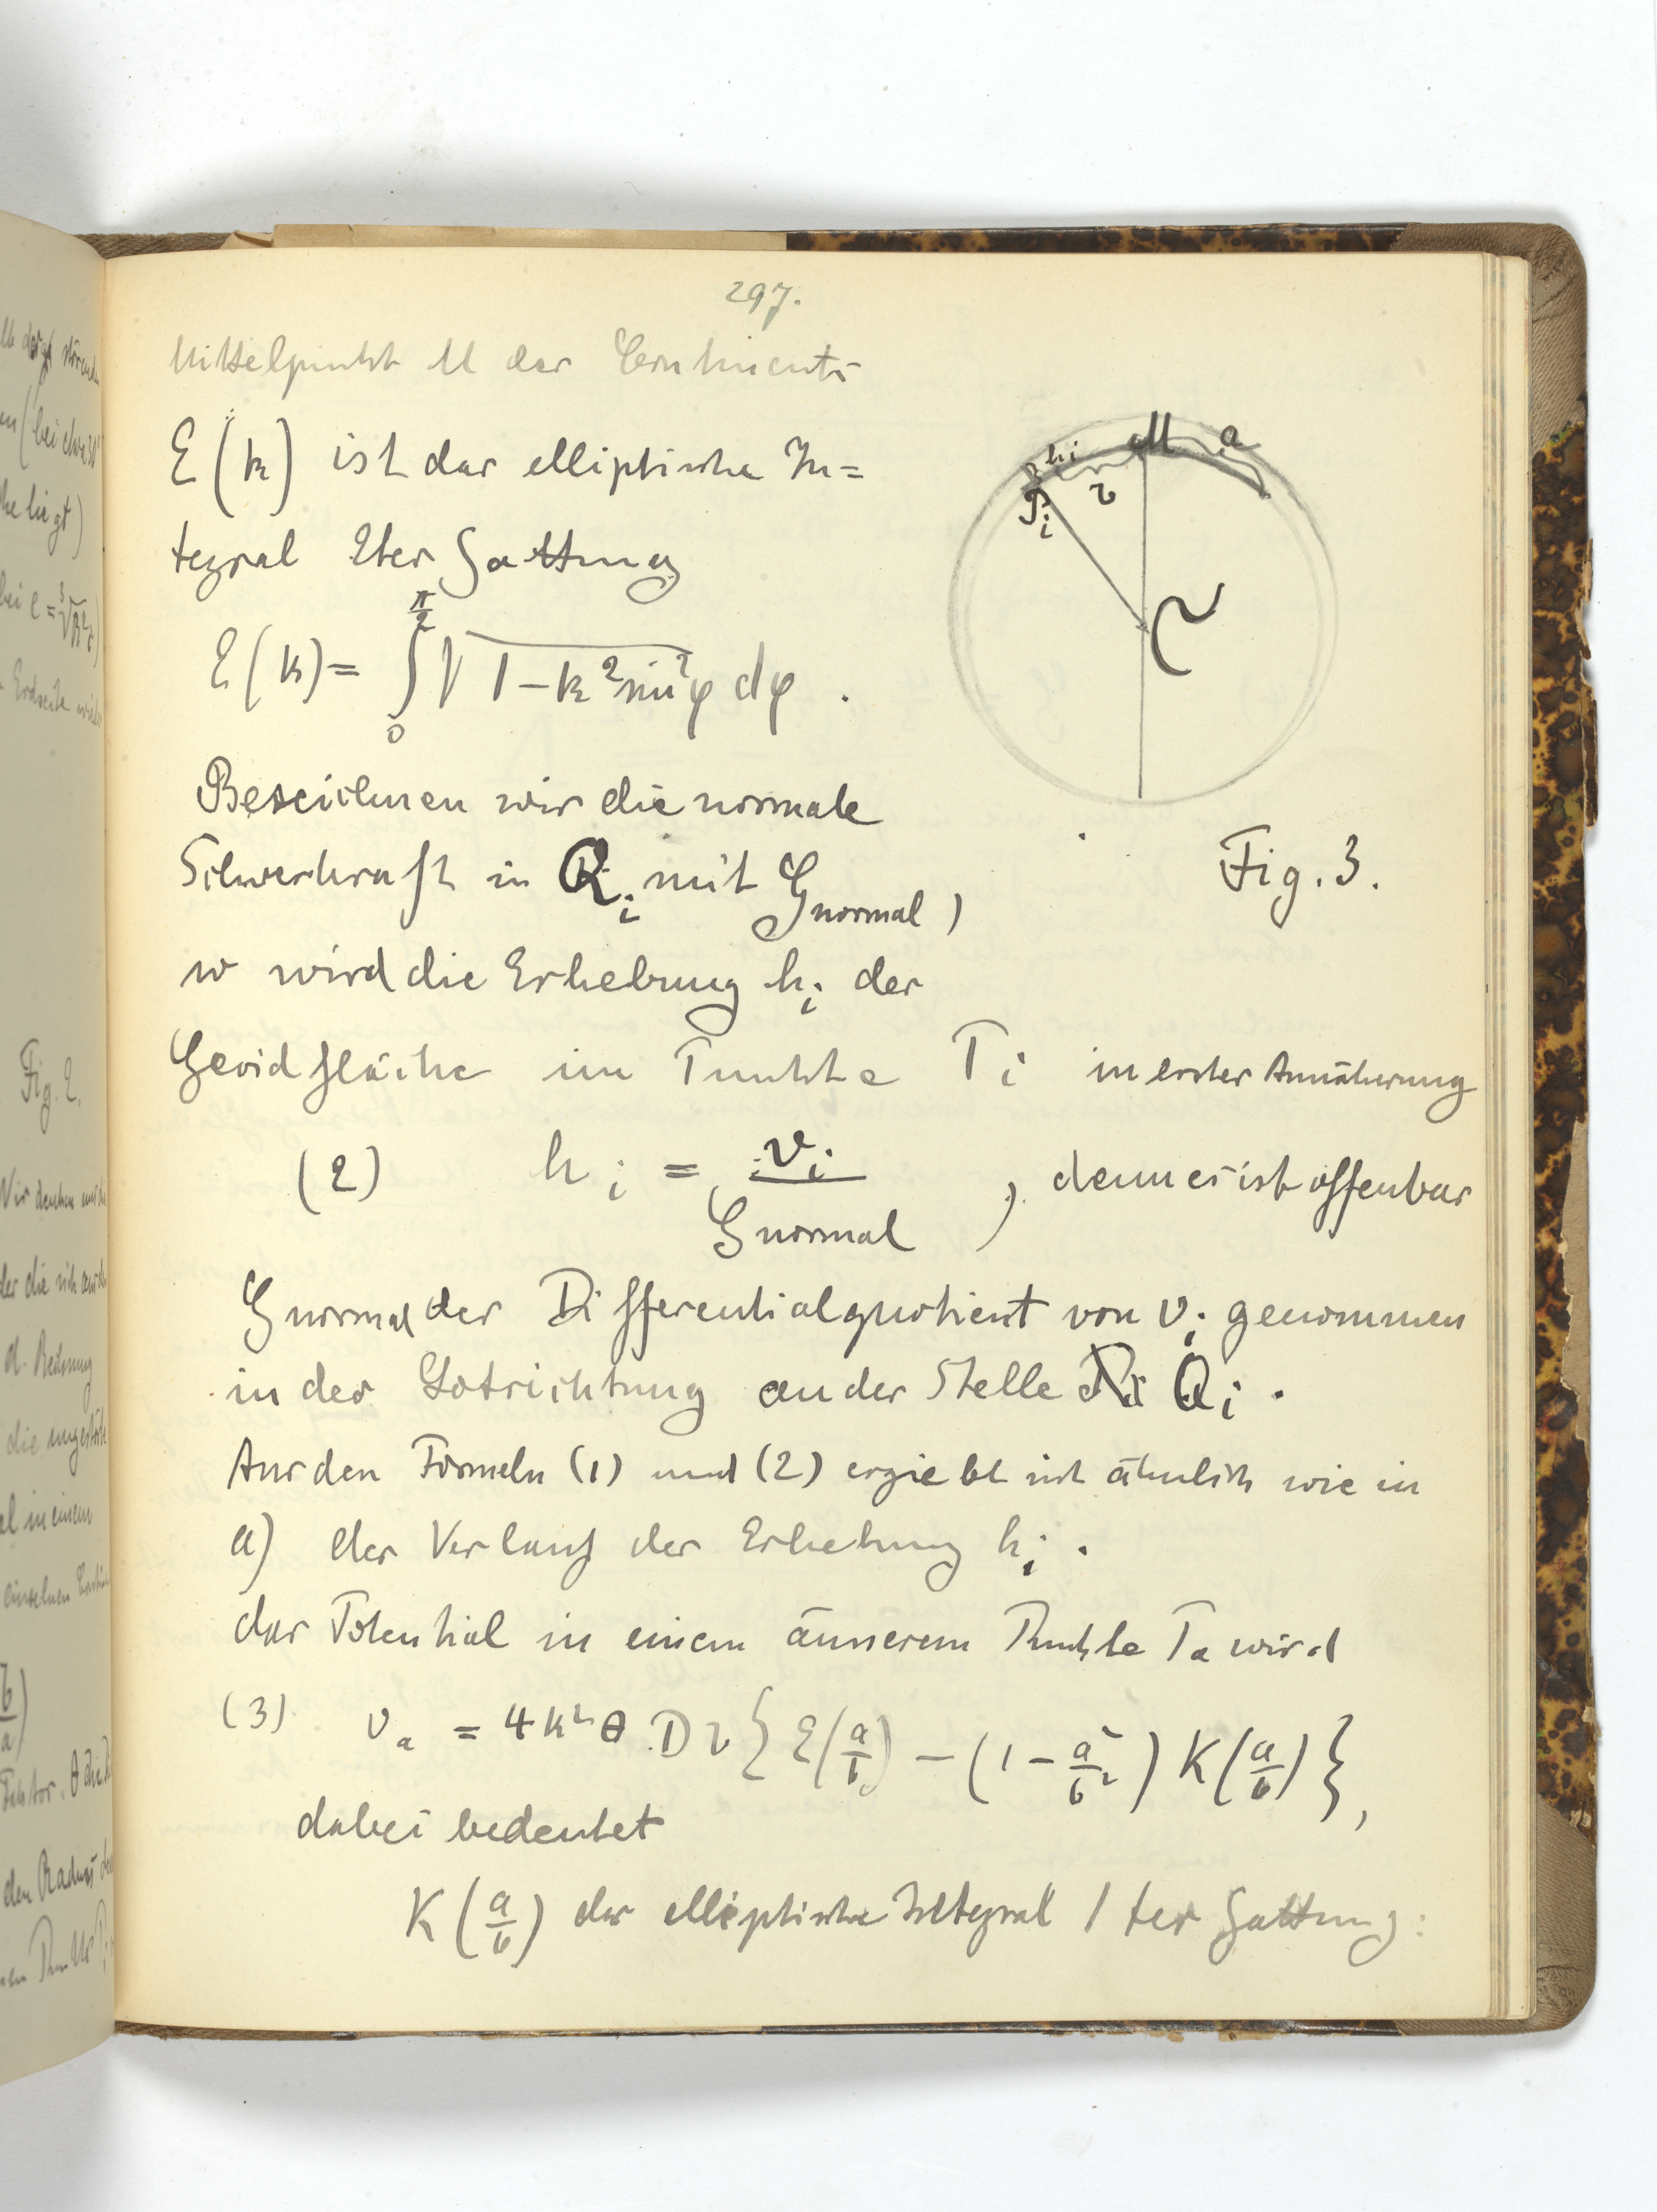 297.
Mittelpunkt M des Continents
E(k) ist das elliptische In=
tegral 2ter Gattung
E(k) = ∫₀^{π/2} √(1-k² sin²φ) dφ .
Bezeichnen wir die normale
Schwerkraft in Q_i mit G_normal,
so wird die Erhebung h_i der
Geoidfläche im Punkte P_i in erster Annäherung
(2) h_i = v_i / G_normal , denn es ist offenbar
G_normal der Differentialquotient von v_i genommen
in der Lotrichtung an der Stelle P_i Q_i .
Aus den Formeln (1) und (2) ergiebt sich ähnlich wie in
a) der Verlauf der Erhebung h_i .
das Potential in einem äusseren Punkte P_a wird
(3) v_a = 4k²θ D r { E(a/b) - (1 - a²/b²) K(a/b) },
dabei bedeutet
K(a/b) das elliptische Integral 1ter Gattung:
h_i
M
a
P_i
r
Fig. 3.
Fig. 2.